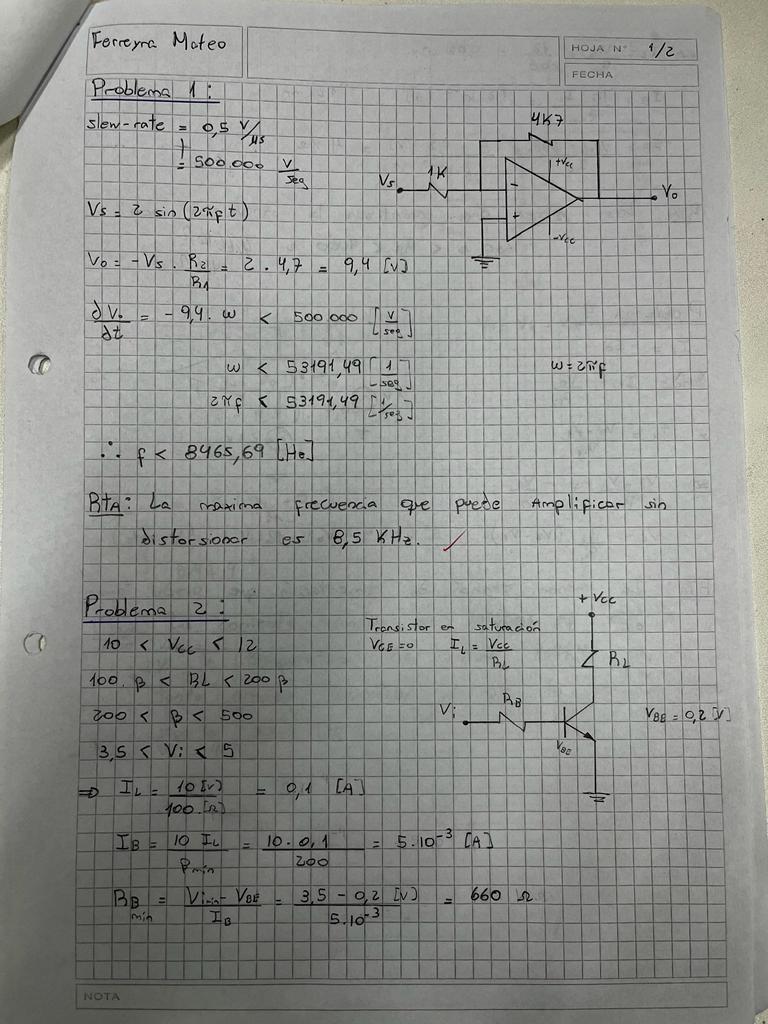 Ferreyra Mateo
HOJA N° 1/2
FECHA
Problema 1:
slew-rate = 0,5 V/μs
= 500.000 V/seg
4K7
1K
Vs
+Vcc
-
+
-Vcc
Vo
Vs = 2 sin(2πft)
Vo = -Vs . R2/R1 = 2 . 4,7 = 9,4 [V]
∂Vo/∂t = -9,4. ω < 500 000 [V/seg]
ω < 53191,49 [1/seg]
ω = 2πf
2πf < 53191,49 [1/seg]
∴ f < 8465,69 [He]
RtA: La maxima frecuencia que puede Amplificar sin
distorsionar es 8,5 KHz. ✓
Problema 2:
10 < Vcc < 12
100. β < RL < 200 β
200 < β < 500
3,5 < Vi < 5
Transistor en saturación
VCE=0 IL = Vcc/RL
+Vcc
RL
RB
Vi
VBE
VBE = 0,2 [V]
⇒ IL = 10 [V]/100 [Ω] = 0,1 [A]
IB = 10 IL/βmin = 10 . 0,1/200 = 5.10⁻³ [A]
RB min = Vimin - VBE/IB = 3,5 - 0,2 [V]/5.10⁻³ = 660 Ω
NOTA